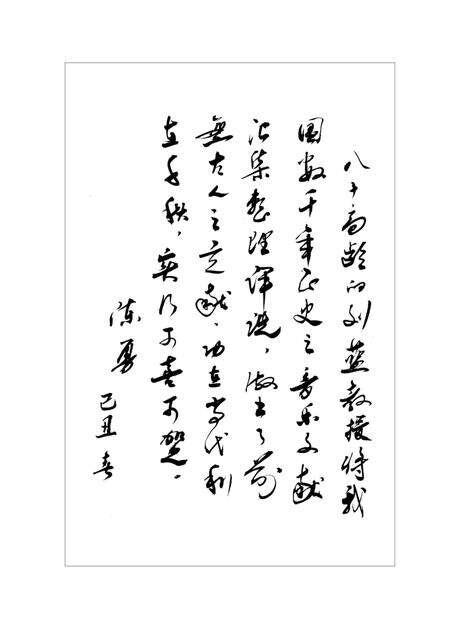 八十高龄的刘蓝教授将我
國数千年正史之音乐文献
集整理说，做出了前
無古人之贡献，功在当代利
在千秋，实乃可喜可贺。
陈勇
己丑春